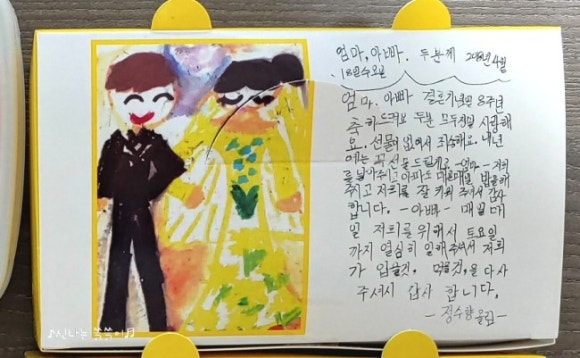 엄마, 아빠. 두분께 2018년 4월
18일 수요일
엄마. 아빠 결혼기념일 8주년
축하드려요 두분 모두 정말 사랑해
요. 선물이 없어서 죄송해요. 내년
에는 꼭 선물 드릴게요 -엄마- 저희
를 낳아주고 아파도 매일매일 밥을해
주시고 저희를 잘 키워 주셔서 감사
합니다. -아빠- 매일매
일 저희를 위해서 토요일
까지 열심히 일해주셔서 저희
가 입을것. 먹을것, 을 다 사
주셔서 감사 합니다.
-정수향 올림-